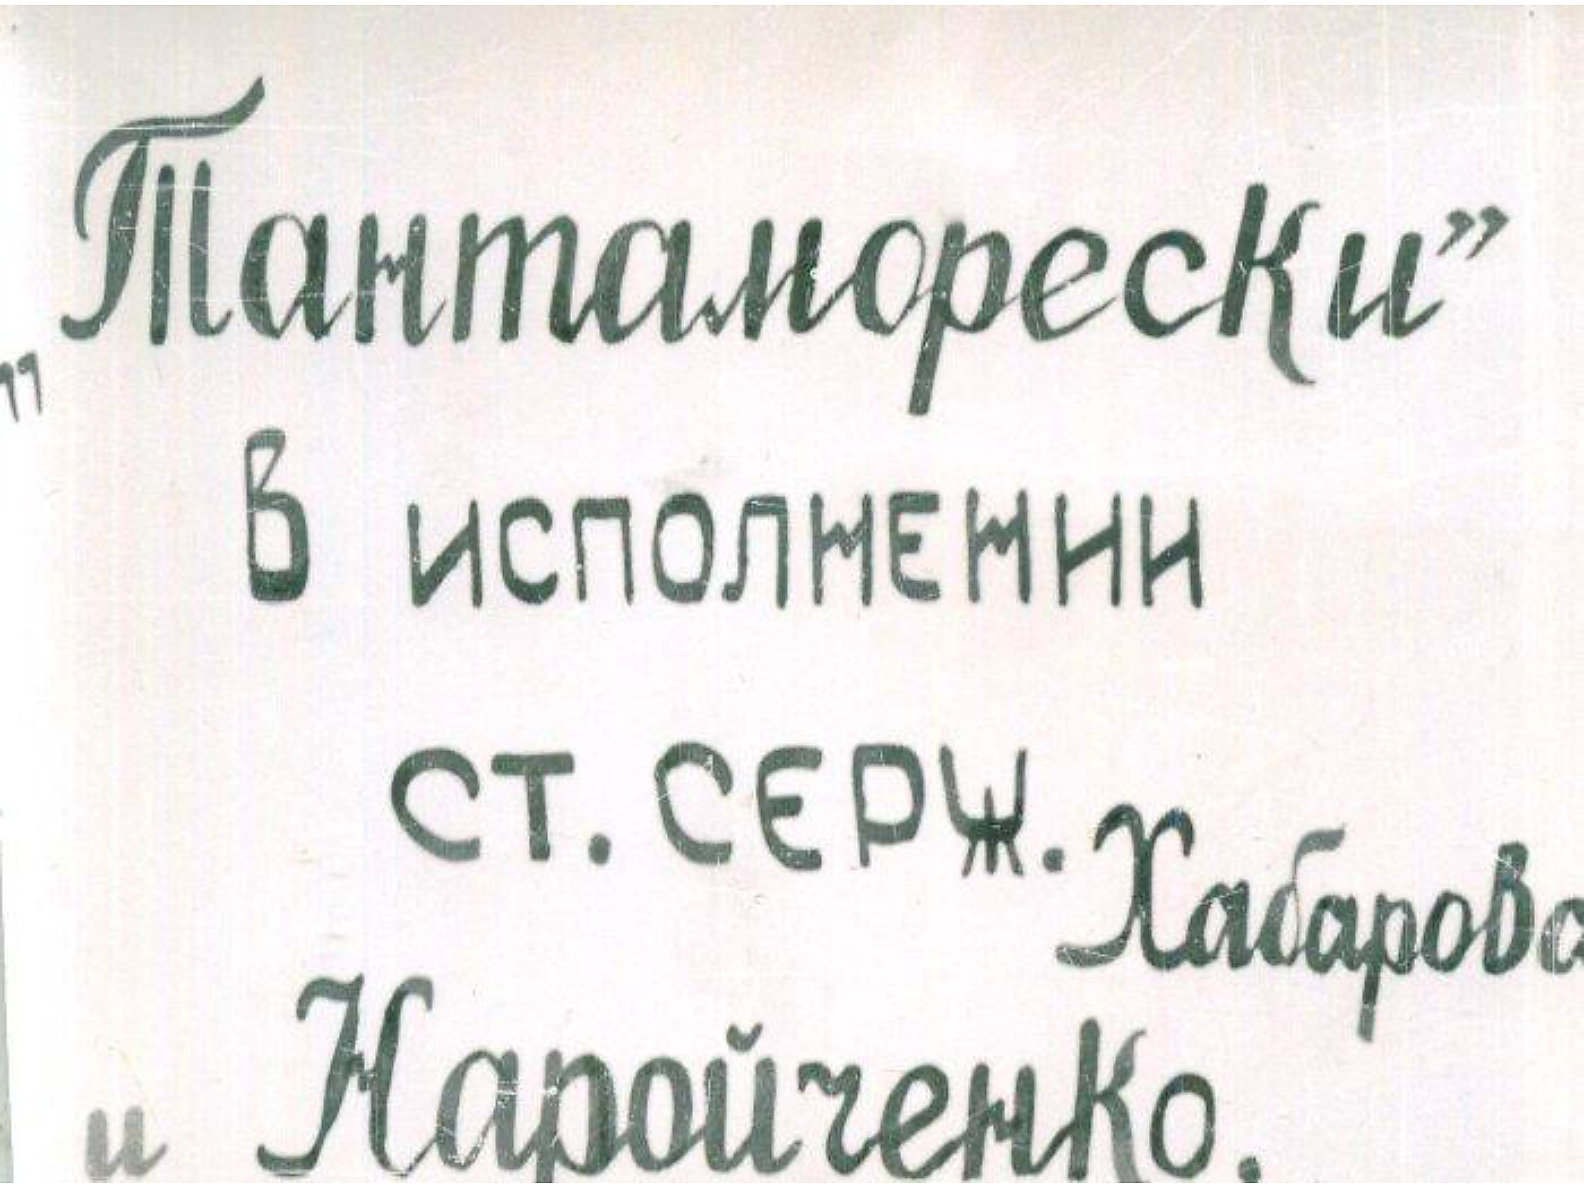 „Тантаморески”
в исполнении
ст. серж. Хабарова
и Наройченко.